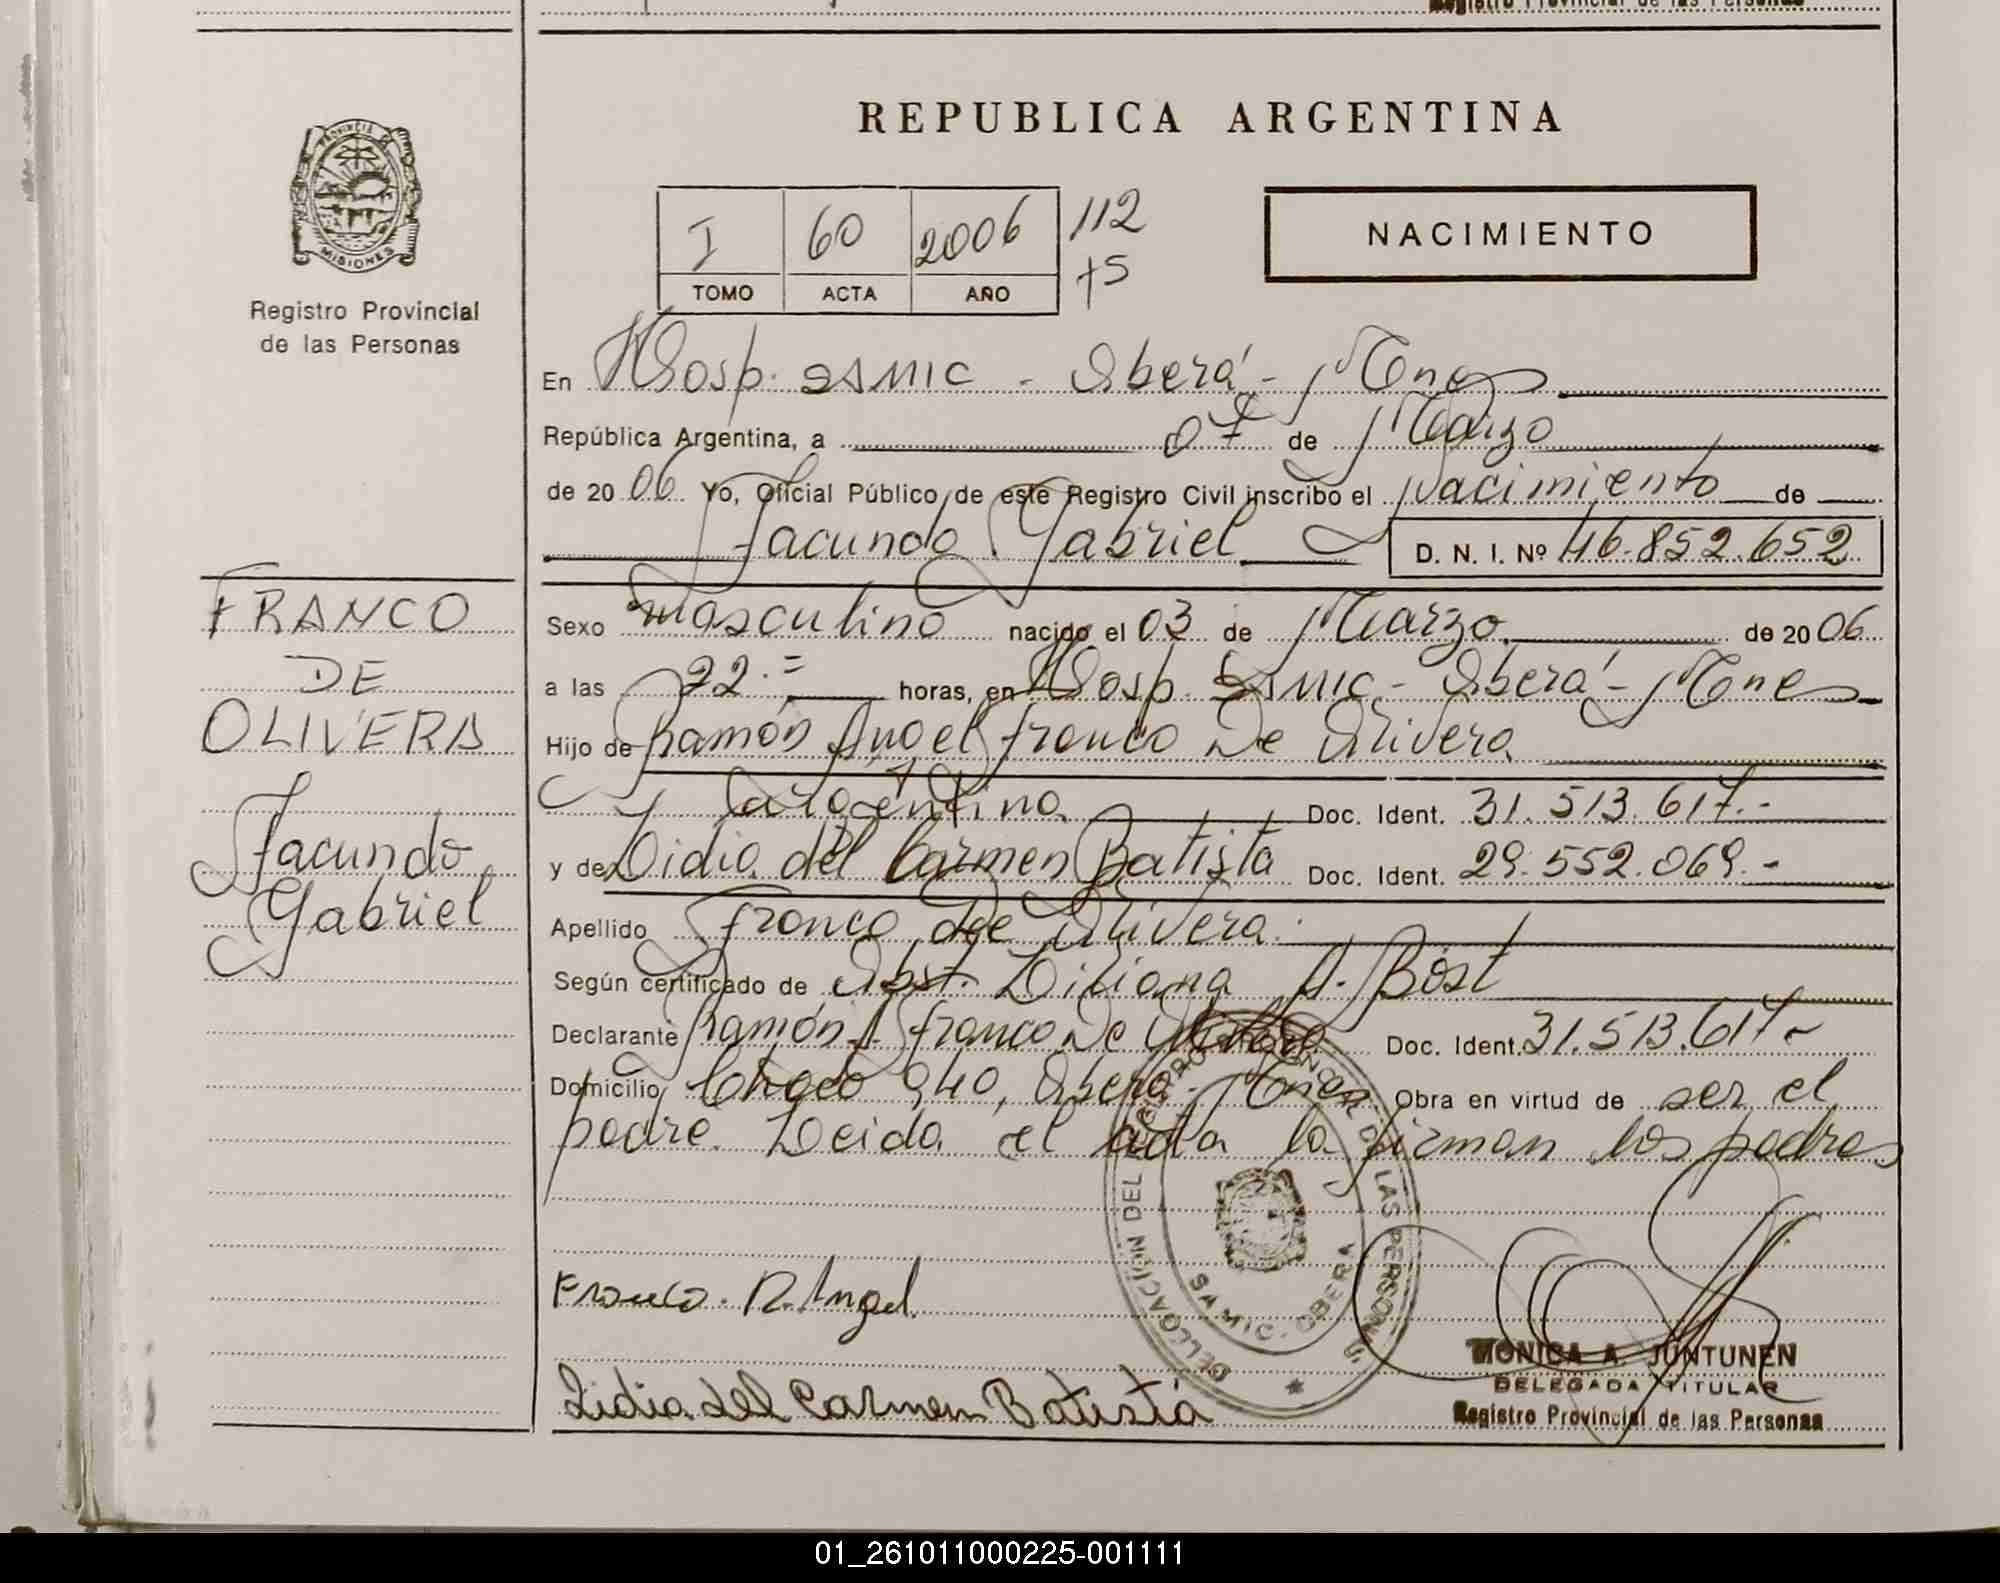 Registro Provincial de las Personas
PROVINCIA DE
MISIONES
Registro Provincial
de las Personas
FRANCO
DE
OLIVERA
Facundo
Gabriel
REPUBLICA ARGENTINA
I 60 2006 112
TOMO ACTA AÑO +5
NACIMIENTO
En Hosp. SAMIC - Oberá - Mnes
República Argentina, a 07 de Marzo
de 2006 Yo, Oficial Público de este Registro Civil inscribo el Nacimiento de
Facundo Gabriel D. N. I. Nº 46.852.652
Sexo masculino nacido el 03 de Marzo de 2006
a las 22.= horas, en Hosp. SAMIC - Oberá - Mnes
Hijo de Ramón Angel Franco De Olivera
Argentino Doc. Ident. 31.513.617.-
y de Lidia del Carmen Batista Doc. Ident. 29.552.069.-
Apellido Franco De Olivera.
Según certificado de Obst. Liliana A. Bost
Declarante Ramón A. Franco De Olivera Doc. Ident. 31.513.617-
Domicilio Chaco 940, Oberá - Mnes. Obra en virtud de ser el
padre. Leida el acta la firman los padres
DELEGACION DEL REGISTRO PROVINCIAL DE LAS PERSONAS
SAMIC. OBERA
Franco. R. Angel.
Lidia del Carmen Batista
MONICA A. JUNTUNEN
DELEGADA TITULAR
Registro Provincial de las Personas
01_261011000225-001111